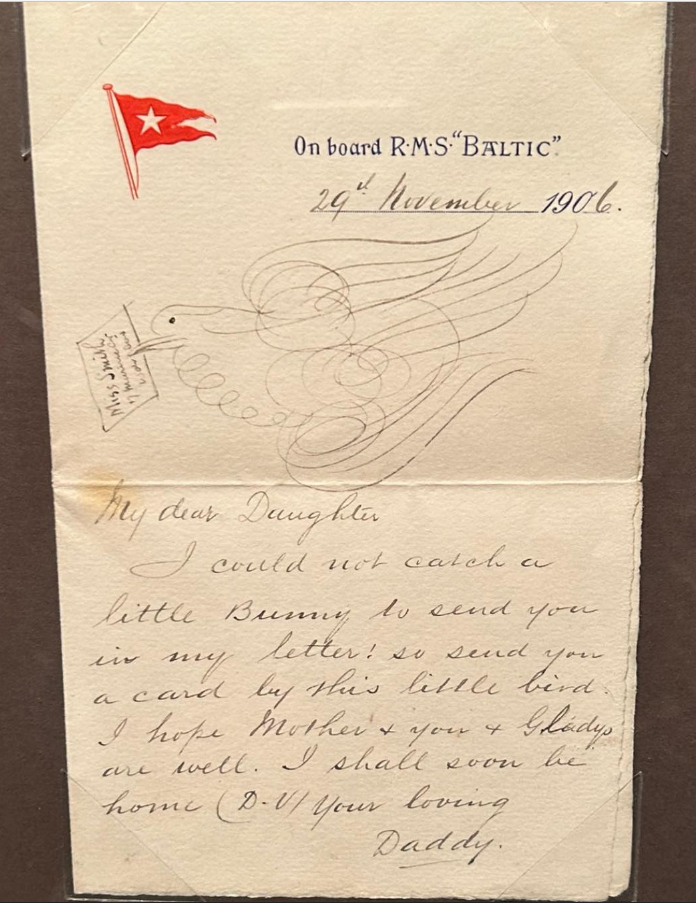 On board R·M·S·"BALTIC"
29th November 1906.
Miss Smith
My dear Daughter
I could not catch a
little Bunny to send you
in my letter! so send you
a card by this little bird.
I hope Mother & you & Gladys
are well. I shall soon be
home (D.V) Your loving
Daddy.